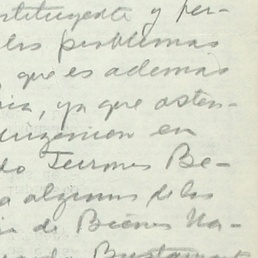 nstituyente y per-
los problemas
que es además
ica, ya que osten-
Terrones Be-
a algunos de los
de Bienes Na-
Bustamante